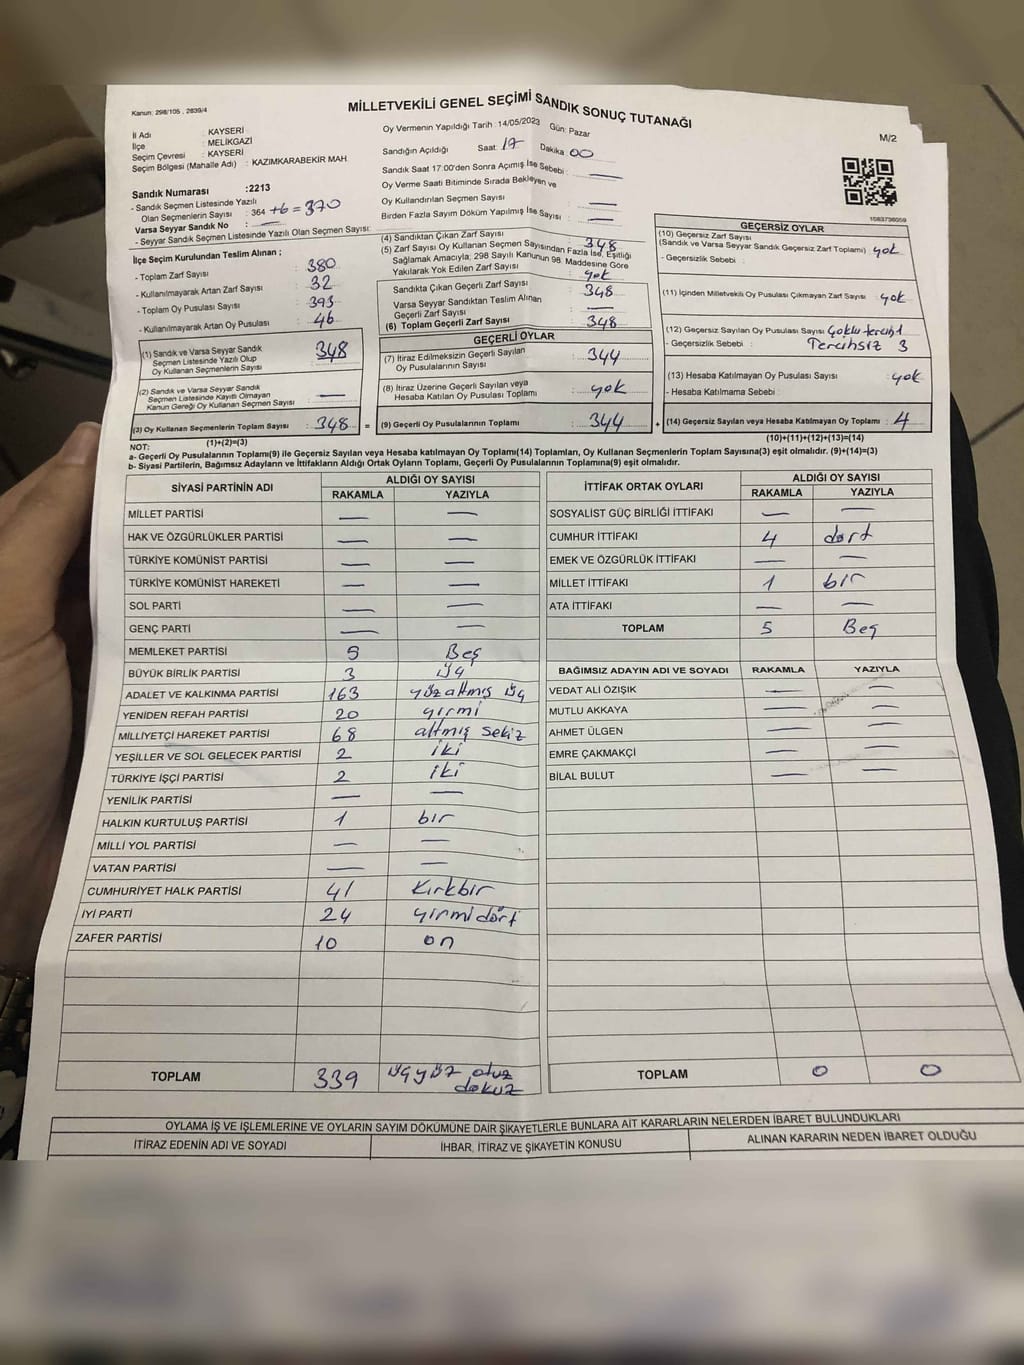 Kanun: 298/105 , 2839/4
MİLLETVEKİLİ GENEL SEÇİMİ SANDIK SONUÇ TUTANAĞI
M/2
İl Adı : KAYSERİ
İlçe : MELİKGAZİ
Seçim Çevresi : KAYSERİ
Seçim Bölgesi (Mahalle Adı) : KAZIMKARABEKIR MAH.
Sandık Numarası :2213
- Sandık Seçmen Listesinde Yazılı
Olan Seçmenlerin Sayısı : 364 +6 = 370
Varsa Seyyar Sandık No : —
- Seyyar Sandık Seçmen Listesinde Yazılı Olan Seçmen Sayısı:
Oy Vermenin Yapıldığı Tarih :14/05/2023 Gün: Pazar
Sandığın Açıldığı Saat: 17 Dakika: 00
Sandık Saat 17:00'den Sonra Açımış İse Sebebi : —
Oy Verme Saati Bitiminde Sırada Bekleyen ve
Oy Kullandırılan Seçmen Sayısı : —
Birden Fazla Sayım Döküm Yapılmış İse Sayısı : —
1083736059
İlçe Seçim Kurulundan Teslim Alınan ;
- Toplam Zarf Sayısı : 380
- Kullanılmayarak Artan Zarf Sayısı : 32
- Toplam Oy Pusulası Sayısı : 393
- Kullanılmayarak Artan Oy Pusulası : 46
(1) Sandık ve Varsa Seyyar Sandık
Seçmen Listesinde Yazılı Olup
Oy Kullanan Seçmenlerin Sayısı : 348
(2) Sandık ve Varsa Seyyar Sandık
Seçmen Listesinde Kayıtlı Olmayan
Kanun Gereği Oy Kullanan Seçmen Sayısı : —
(3) Oy Kullanan Seçmenlerin Toplam Sayısı : 348 =
(1)+(2)=(3)
(4) Sandıktan Çıkan Zarf Sayısı : 348
(5) Zarf Sayısı Oy Kullanan Seçmen Sayısından Fazla İse, Eşitliği
Sağlamak Amacıyla; 298 Sayılı Kanunun 98. Maddesine Göre
Yakılarak Yok Edilen Zarf Sayısı : yok
Sandıkta Çıkan Geçerli Zarf Sayısı : 348
Varsa Seyyar Sandıktan Teslim Alınan
Geçerli Zarf Sayısı : —
(6) Toplam Geçerli Zarf Sayısı : 348
GEÇERLİ OYLAR
(7) İtiraz Edilmeksizin Geçerli Sayılan
Oy Pusulalarının Sayısı : 344
(8) İtiraz Üzerine Geçerli Sayılan veya
Hesaba Katılan Oy Pusulası Toplamı : yok
(9) Geçerli Oy Pusulalarının Toplamı : 344 +
GEÇERSİZ OYLAR
(10) Geçersiz Zarf Sayısı
(Sandık ve Varsa Seyyar Sandık Geçersiz Zarf Toplamı) : yok
- Geçersizlik Sebebi :
(11) İçinden Milletvekili Oy Pusulası Çıkmayan Zarf Sayısı : yok
(12) Geçersiz Sayılan Oy Pusulası Sayısı : Çoklu tercih 1
- Geçersizlik Sebebi : Tercihsiz 3
(13) Hesaba Katılmayan Oy Pusulası Sayısı : yok
- Hesaba Katılmama Sebebi :
(14) Geçersiz Sayılan veya Hesaba Katılmayan Oy Toplamı : 4
(10)+(11)+(12)+(13)=(14)
NOT:
a- Geçerli Oy Pusulasının Toplamı(9) ile Geçersiz Sayılan veya Hesaba katılmayan Oy Toplamı(14) Toplamları, Oy Kullanan Seçmenlerin Toplam Sayısına(3) eşit olmalıdır. (9)+(14)=(3)
b- Siyasi Partilerin, Bağımsız Adayların ve İttifakların Aldığı Ortak Oyların Toplamı, Geçerli Oy Pusulalarının Toplamına(9) eşit olmalıdır.
SİYASİ PARTİNİN ADI
ALDIĞI OY SAYISI
RAKAMLA YAZIYLA
MİLLET PARTİSİ — —
HAK VE ÖZGÜRLÜKLER PARTİSİ — —
TÜRKİYE KOMÜNİST PARTİSİ — —
TÜRKİYE KOMÜNİST HAREKETİ — —
SOL PARTİ — —
GENÇ PARTİ — —
MEMLEKET PARTİSİ 5 Beş
BÜYÜK BİRLİK PARTİSİ 3 üç
ADALET VE KALKINMA PARTİSİ 163 yüzaltmış üç
YENİDEN REFAH PARTİSİ 20 yirmi
MİLLİYETÇİ HAREKET PARTİSİ 68 altmış sekiz
YEŞİLLER VE SOL GELECEK PARTİSİ 2 iki
TÜRKİYE İŞÇİ PARTİSİ 2 iki
YENİLİK PARTİSİ — —
HALKIN KURTULUŞ PARTİSİ 1 bir
MİLLİ YOL PARTİSİ — —
VATAN PARTİSİ — —
CUMHURİYET HALK PARTİSİ 41 Kırkbir
İYİ PARTİ 24 yirmidört
ZAFER PARTİSİ 10 on
TOPLAM 339 üçyüz otuz
dokuz
İTTİFAK ORTAK OYLARI
ALDIĞI OY SAYISI
RAKAMLA YAZIYLA
SOSYALİST GÜÇ BİRLİĞİ İTTİFAKI — —
CUMHUR İTTİFAKI 4 dört
EMEK VE ÖZGÜRLÜK İTTİFAKI — —
MİLLET İTTİFAKI 1 bir
ATA İTTİFAKI — —
TOPLAM 5 Beş
BAĞIMSIZ ADAYIN ADI VE SOYADI RAKAMLA YAZIYLA
VEDAT ALİ ÖZIŞIK — —
MUTLU AKKAYA — —
AHMET ÜLGEN — —
EMRE ÇAKMAKÇİ — —
BİLAL BULUT — —
TOPLAM 0 0
OYLAMA İŞ VE İŞLEMLERİNE VE OYLARIN SAYIM DÖKÜMÜNE DAİR ŞİKAYETLERLE BUNLARA AİT KARARLARIN NELERDEN İBARET BULUNDUKLARI
İTİRAZ EDENİN ADI VE SOYADI İHBAR, İTİRAZ VE ŞİKAYETİN KONUSU ALINAN KARARIN NEDEN İBARET OLDUĞU